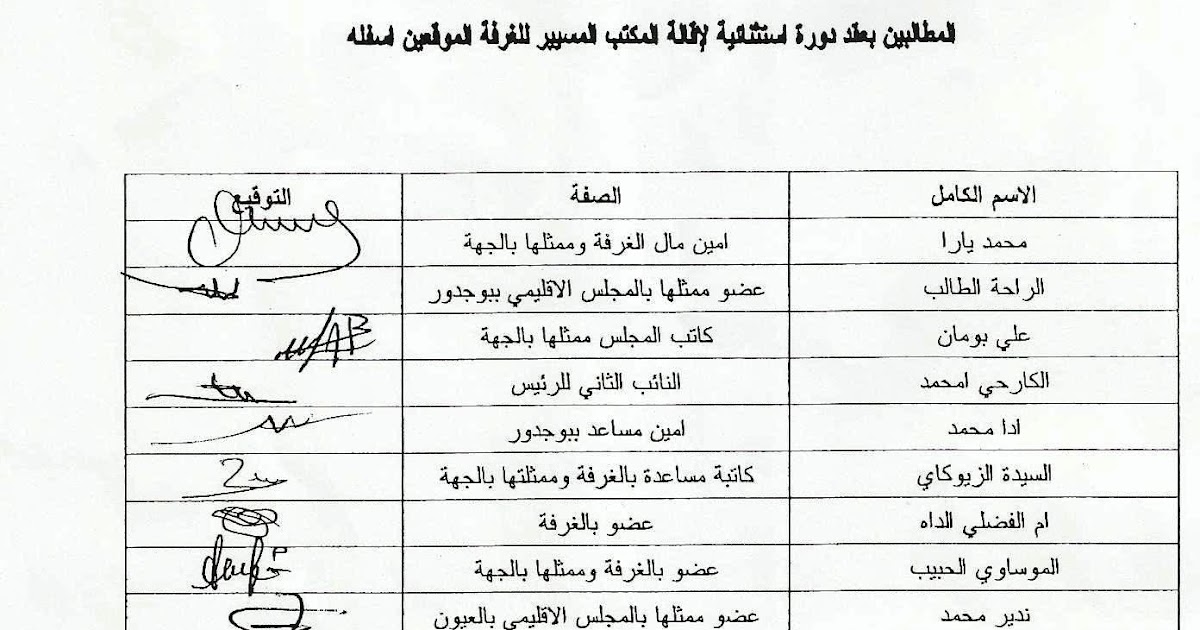 المطالبين بعقد دورة استثنائية لإقالة المكتب المسيير للغرفة الموقعين اسفله
الاسم الكامل الصفة التوقيع
محمد يارا امين مال الغرفة وممثلها بالجهة
الراحة الطالب عضو ممثلها بالمجلس الاقليمي ببوجدور
علي بومان كاتب المجلس ممثلها بالجهة
الكارحي امحمد النائب الثاني للرئيس
ادا محمد امين مساعد ببوجدور
السيدة الزيوكاي كاتبة مساعدة بالغرفة وممثلتها بالجهة
ام الفضلي الداه عضو بالغرفة
الموساوي الحبيب عضو بالغرفة وممثلها بالجهة
ندير محمد عضو ممثلها بالمجلس الاقليمي بالعيون